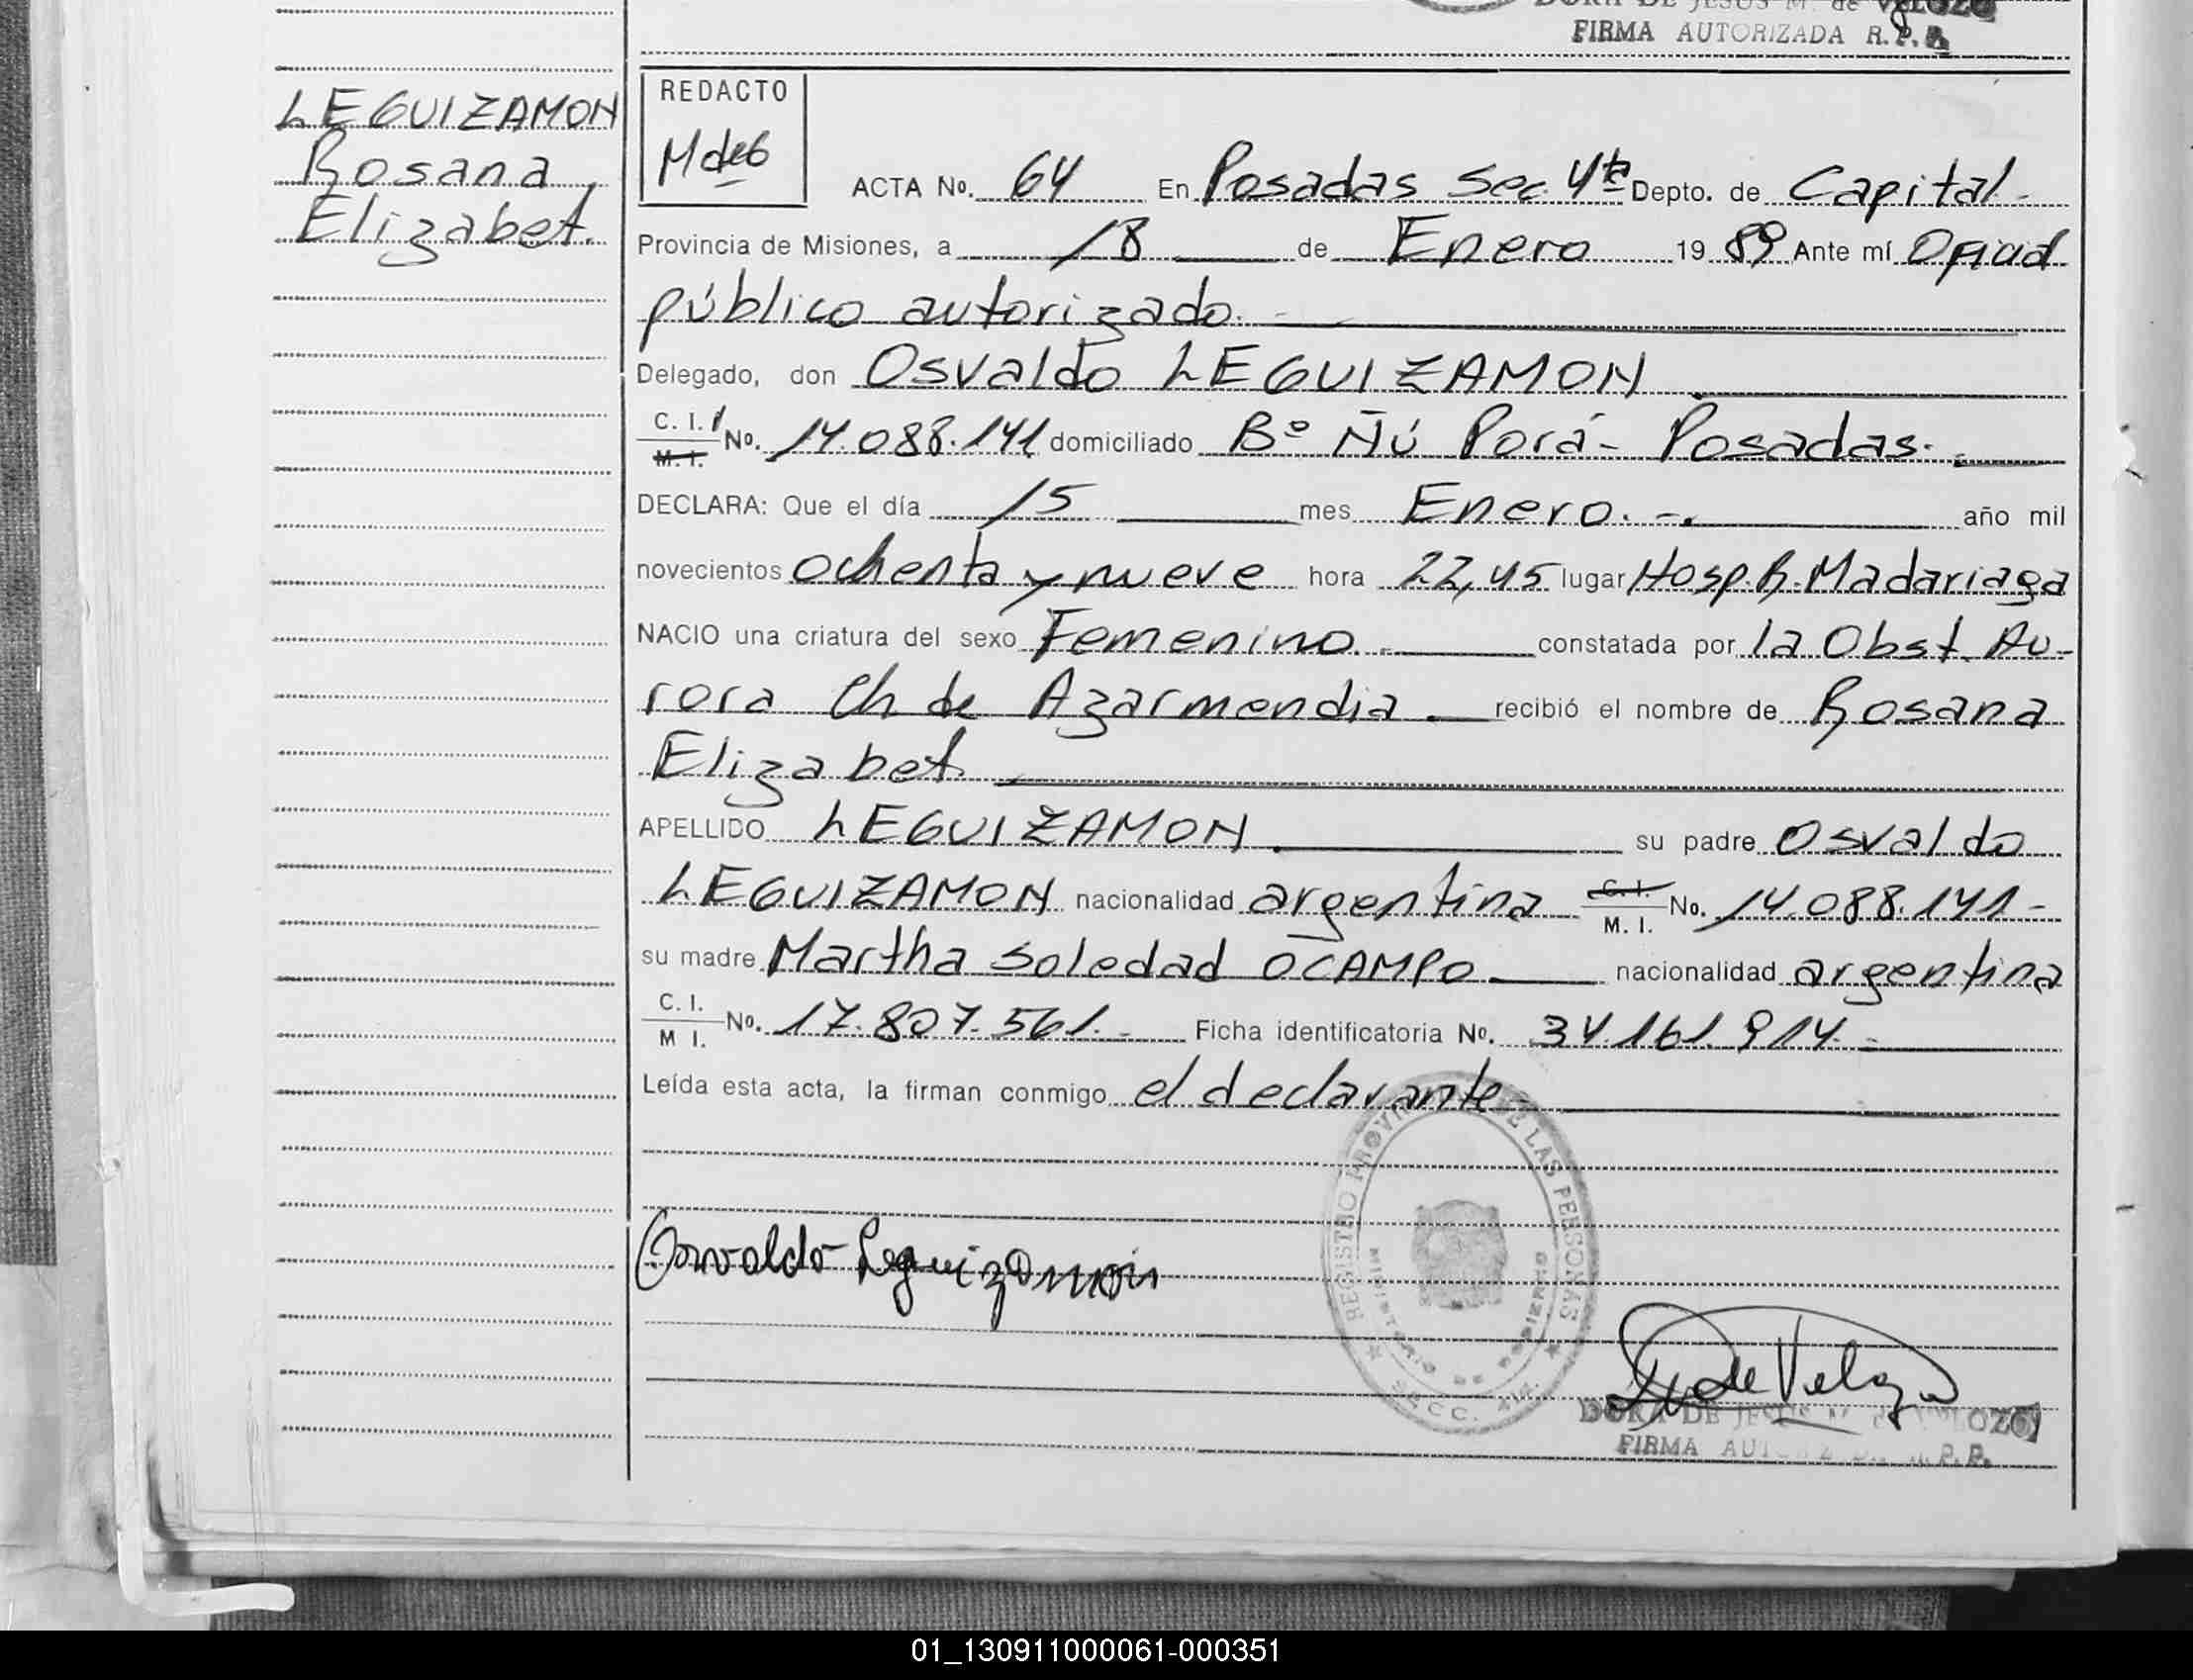 DORA DE JESUS M. de VELOZO
FIRMA AUTORIZADA R.P.P.
LEGUIZAMON
Rosana
Elizabet.
REDACTO
ACTA No. 64 En Posadas Sec. 4ta Depto. de Capital.-
Provincia de Misiones, a 18 de Enero 1989 Ante mí Oficial
público autorizado.-
Delegado, don Osvaldo LEGUIZAMON
C. I. / M. I. No. 14.088.141 domiciliado Bº Ñú Porá - Posadas.-
DECLARA: Que el día 15 mes Enero.-. año mil
novecientos ochenta y nueve hora 22,45 lugar Hosp. R. Madariaga
NACIO una criatura del sexo Femenino.- constatada por la Obst. Au-
rora Ch de Azarmendia recibió el nombre de Rosana
Elizabet.
APELLIDO LEGUIZAMON su padre Osvaldo
LEGUIZAMON nacionalidad argentina C. I. / M. I. No. 14.088.141-
su madre Martha Soledad OCAMPO nacionalidad argentina
C. I. / M I. No. 17.807.561.- Ficha identificatoria No. 34.161.914.-
Leída esta acta, la firman conmigo el declarante-
REGISTRO PROVINCIAL DE LAS PERSONAS
MINISTERIO DE GOBIERNO
Osvaldo Leguizamón
de Velozo
DORA DE JESUS M. de VELOZO
FIRMA AUTORIZADA R.P.P.
01_130911000061-000351